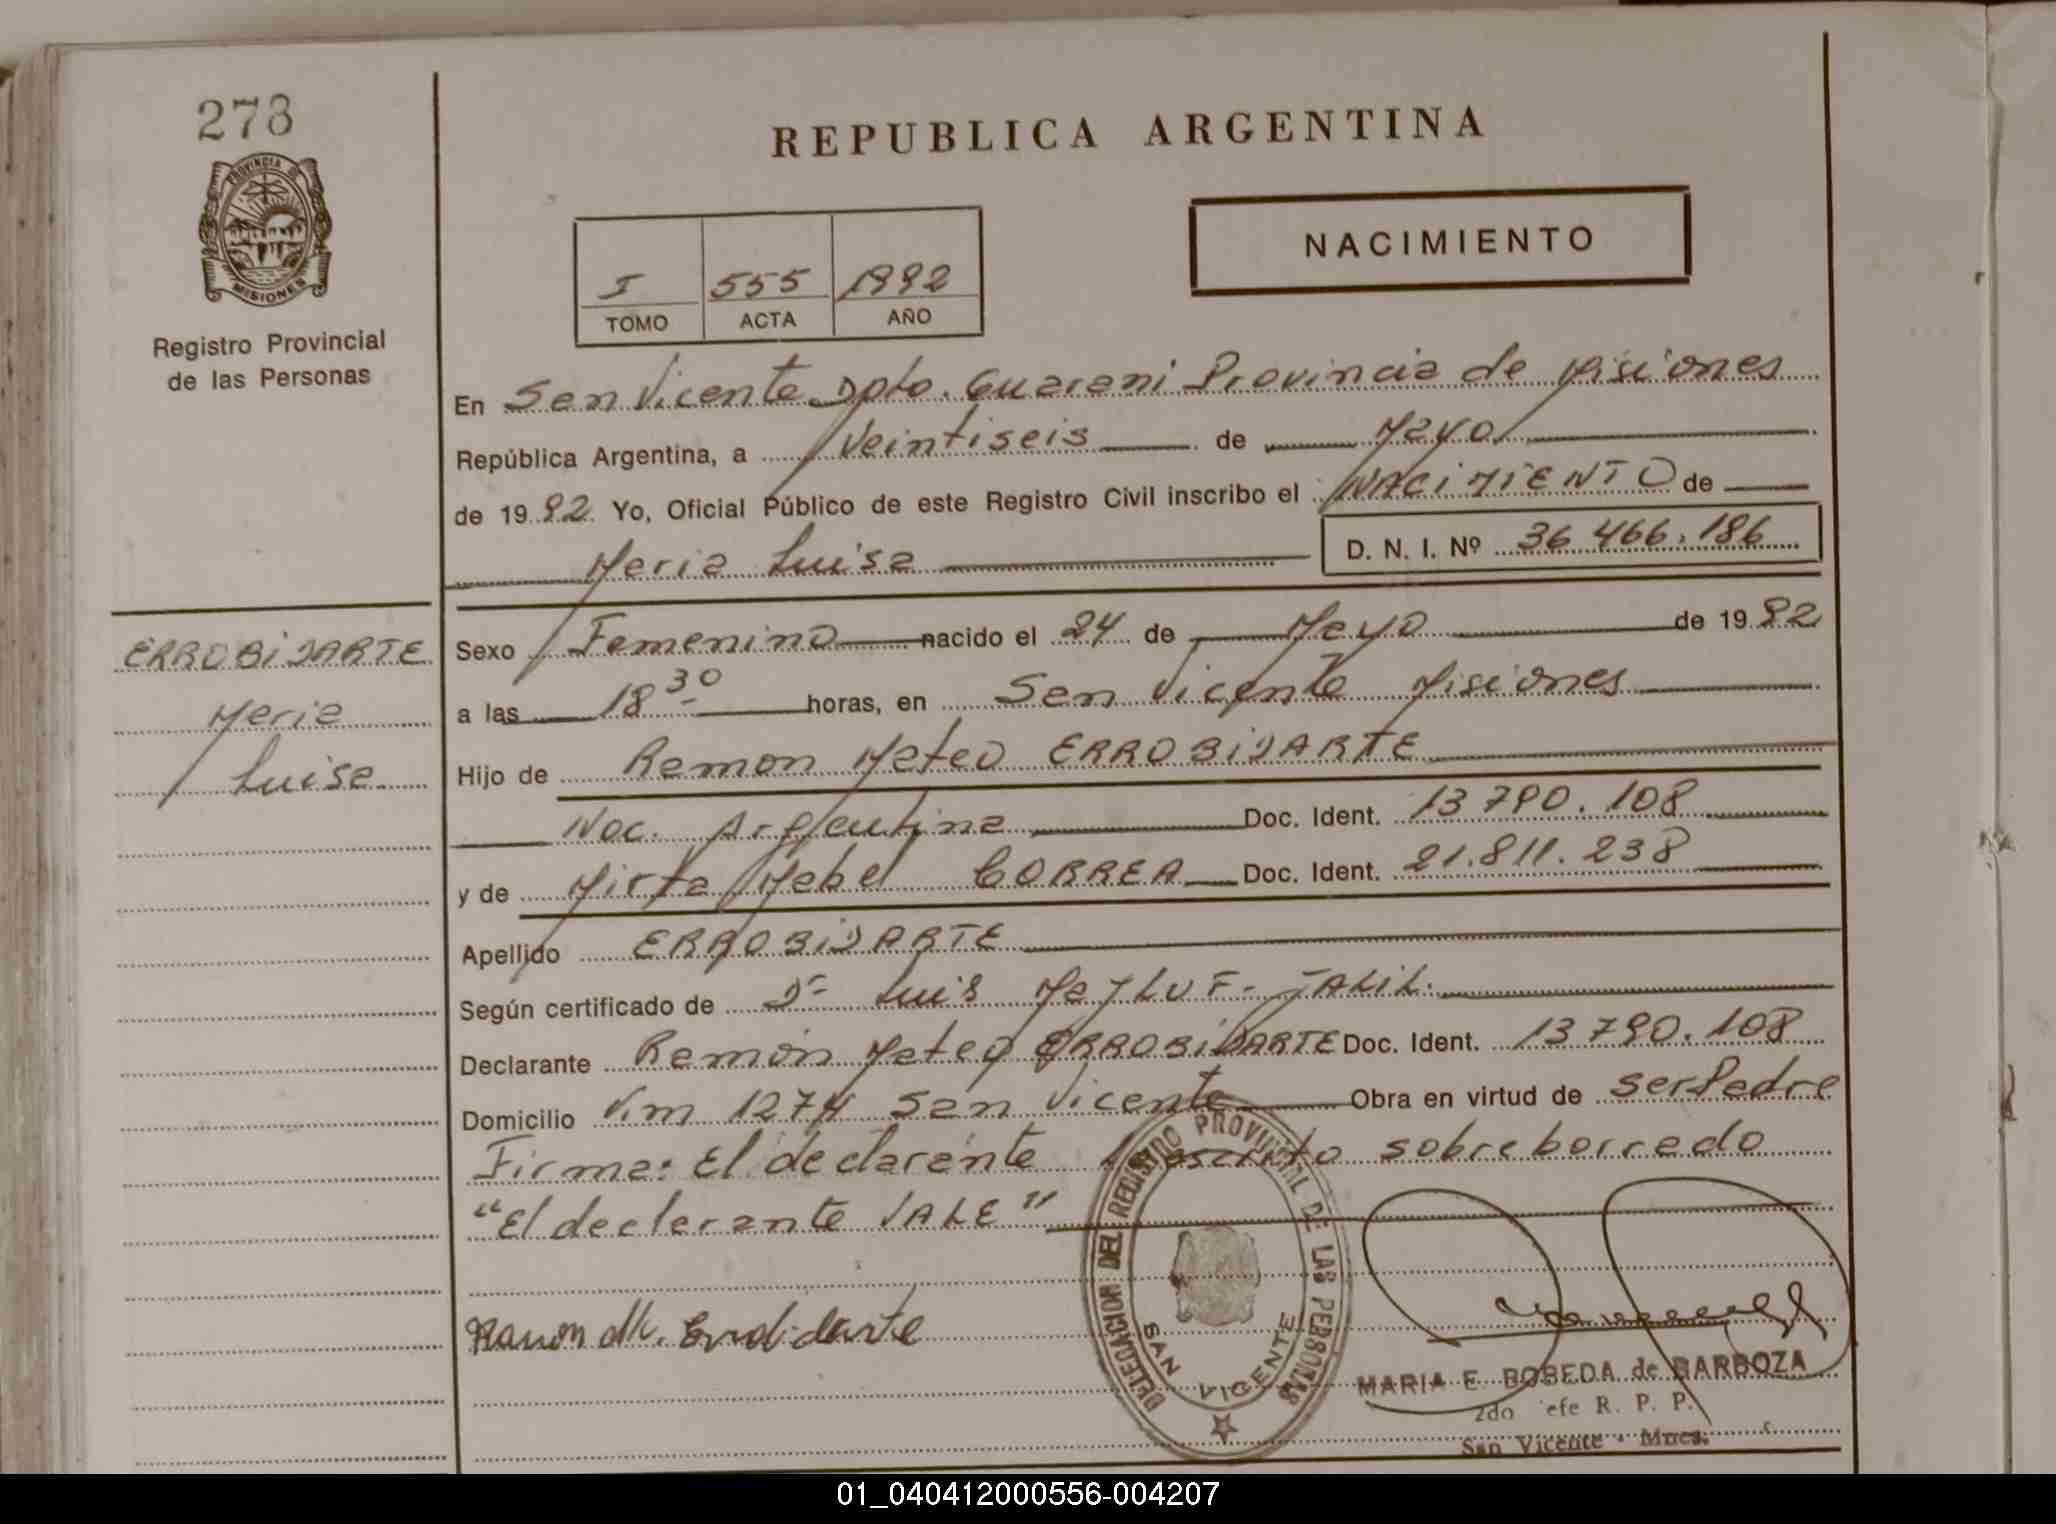 278
PROVINCIA
MISIONES
Registro Provincial
de las Personas
REPUBLICA ARGENTINA
NACIMIENTO
I 555 1992
TOMO ACTA AÑO
En San Vicente Dpto. Guarani Provincia de Misiones
República Argentina, a Veintiseis de Mayo
de 19 92 Yo, Oficial Público de este Registro Civil inscribo el NACIMIENTO de
Maria Luisa D. N. I. Nº 36 466.186
ERROBIDARTE
Maria
Luisa
Sexo Femenino nacido el 24 de Mayo de 19 92
a las 18 30 horas, en San Vicente Misiones
Hijo de Ramon Mateo ERROBIDARTE
Nac. Argentina Doc. Ident. 13 790.108
y de Mirta Mabel CORREA Doc. Ident. 21.811.238
Apellido ERROBIDARTE
Según certificado de Dr Luis MAJLUF - JALIL.
Declarante Ramón Mateo ERROBIDARTE Doc. Ident. 13 790.108
Domicilio Km 1274 San Vicente Obra en virtud de ser Padre
Firma: El declarante sobreborrado
"El declarante VALE"
DELEGACION DEL REGISTRO PROVINCIAL DE LAS PERSONAS
SAN VICENTE
Ramon M. Errobidarte
MARIA E. BOBEDA de BARBOZA
2do efe R. P. P.
San Vicente - Mnes.
01_040412000556-004207